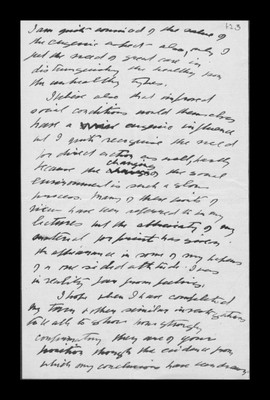 I am quite convinced of the value of
the eugenic aspect also, only I
feel the need of great care in
distinguishing the healthy from
the unhealthy types.
I believe also that improved
social conditions would themselves
have a eugenic influence
but I quite recognise the need
for direct action as well, partly
because the changing of the social
environment is such a slow
process. Many of these points of
view have been referred to in my
lectures but the of my
material for has given
the appearance in some of my papers
of a one sided attitude I was
in reality far from feeling.
I hope when I have completed
my and other similar investigations
to be able to show how strongly
confirmatory they are of your
position though the evidence from
which my conclusions have been drawn